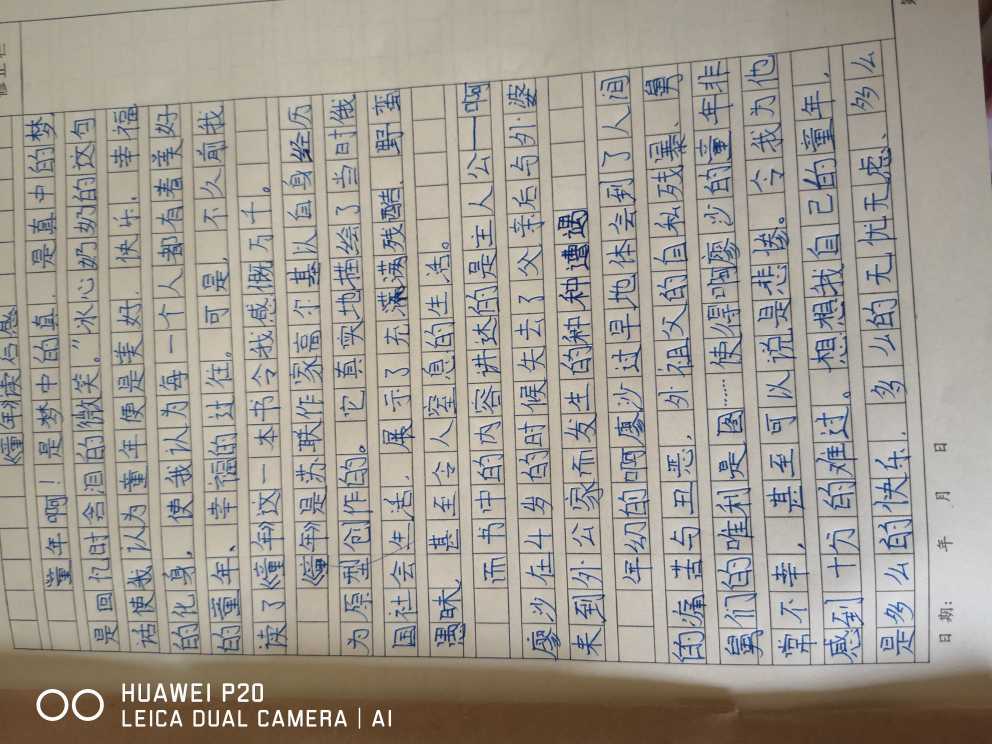 《童年》读后感
童年啊！是梦中的真，是真中的梦
是回忆时含泪的微笑。”冰心奶奶的这句
话使我认为童年便是美好、快乐、幸福
的化身，使我认为每一个人都有着美好
的童年、幸福的过往。可是，不久前我
读了《童年》这一本书令我感慨万千。
《童年》是苏联作家高尔基以自身经历
为原型创作的。它真实地描绘了当时俄
国社会生活，展示了充满残酷、野蛮
愚昧、甚至令人窒息的生活。
而书中的内容讲述的是主人公——啊
廖沙在4岁的时候失去了父亲后与外婆
来到外公家而发生的种种遭遇
年幼的啊廖沙过早地体会到了人间
的痛苦与丑恶，外祖父的自私残暴、舅
舅们的唯利是图……使得啊廖沙的童年非
常不幸，甚至可以说是悲惨。令我为他
感到十分的难过。想想我自己的童年，
是多么的快乐，多么的无忧无虑、多么
日期： 年 月 日
HUAWEI P20
LEICA DUAL CAMERA | AI